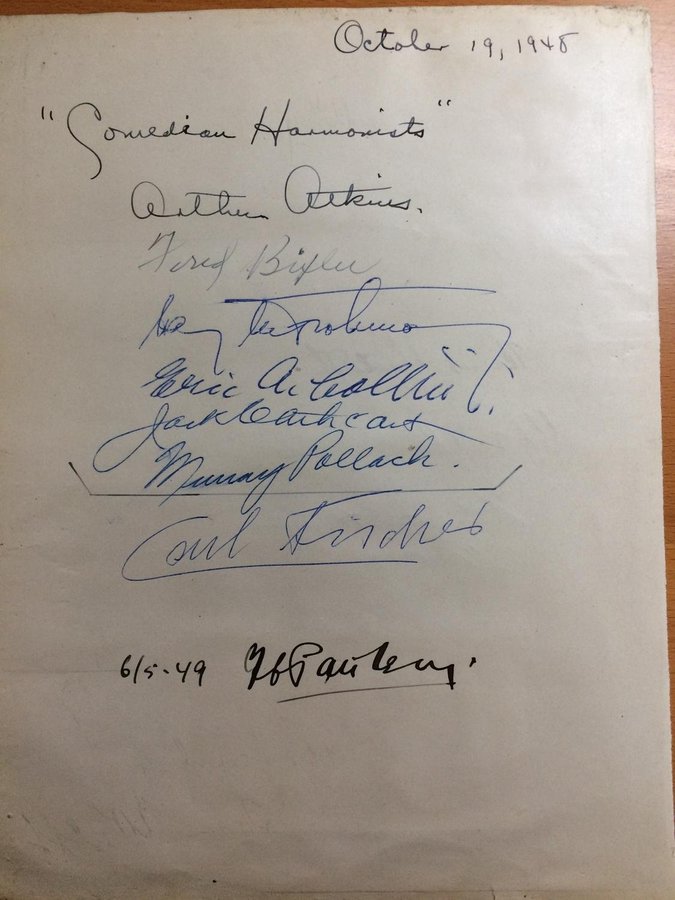 October 19, 1948
"Comedian Harmonists"
Arthur Atkins.
Fred Bixler
Eric A. Collin
Jack Cathcart
Murray Pollack.
Carl Fischer
6/5-49